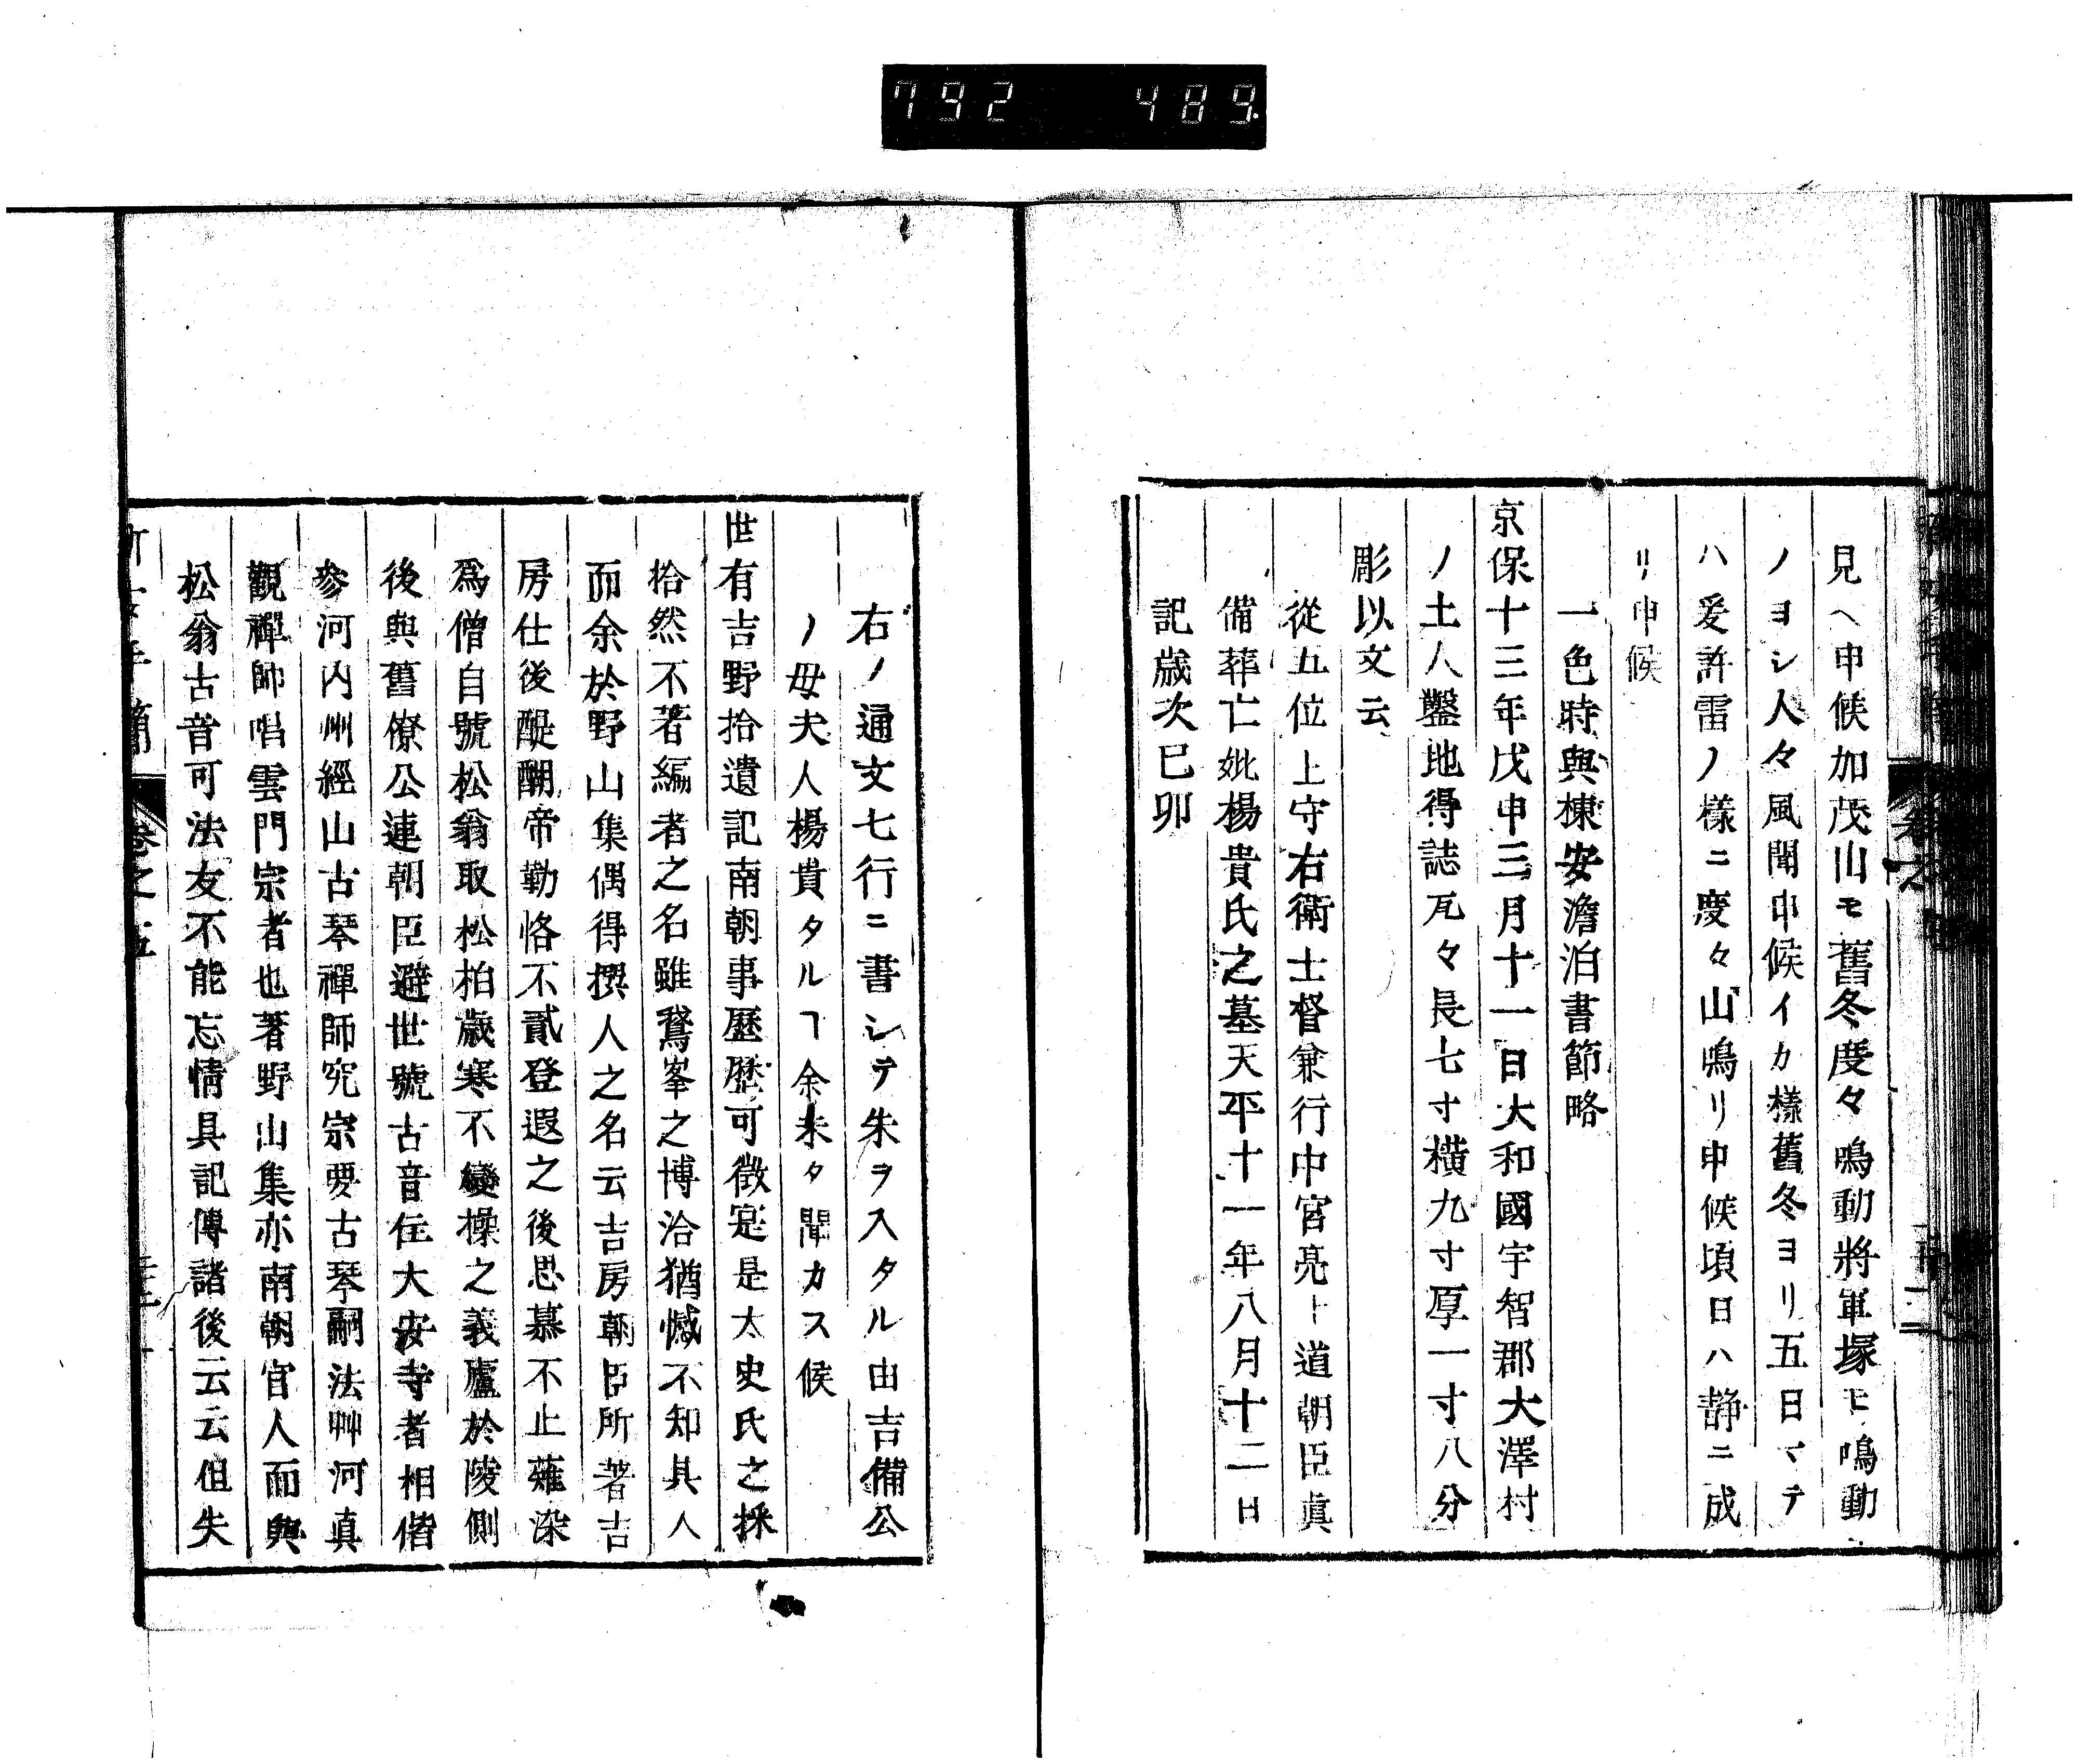 792 489
見ヘ申候加茂山モ舊冬度々鳴動將軍塚モ鳴動
ノヨシ人々風聞申候イカ樣舊冬ヨリ五日マテ
ハ爰許雷ノ樣ニ度々山鳴リ申候頃日ハ静ニ成
リ申候
一色時與棟安澹泊書節略
京保十三年戊申三月十一日大和國宇智郡大澤村
ノ土人鑿地得誌瓦々長七寸橫九寸厚一寸八分
彫以文云
從五位上守右衛士督兼行中宮亮下道朝臣眞
備葬亡妣楊貴氏之墓天平十一年八月十二日
記歳次巳卯
右ノ通文七行ニ書シテ朱ヲ入タル由吉備公
ノ母夫人楊貴タルヿ余未タ聞カス候
世有吉野拾遺記南朝事歷歷可徵寔是太史氏之採
拾然不著編者之名雖鵞峯之博洽猶憾不知其人
而余於野山集偶得撰人之名云吉房朝臣所著吉
房仕後醍醐帝勤恪不貳登遐之後思慕不止薙染
爲僧自號松翁取松柏歲寒不變操之義廬於陵側
後與舊僚公連朝臣避世號古音住大安寺者相偕
參河內州經山古琴禪師究宗要古琴嗣法艸河真
觀禪師唱雲門宗者也著野山集亦南朝官人而與
松翁古音可法友不能忘情具記傳諸後云云但失
卷之五